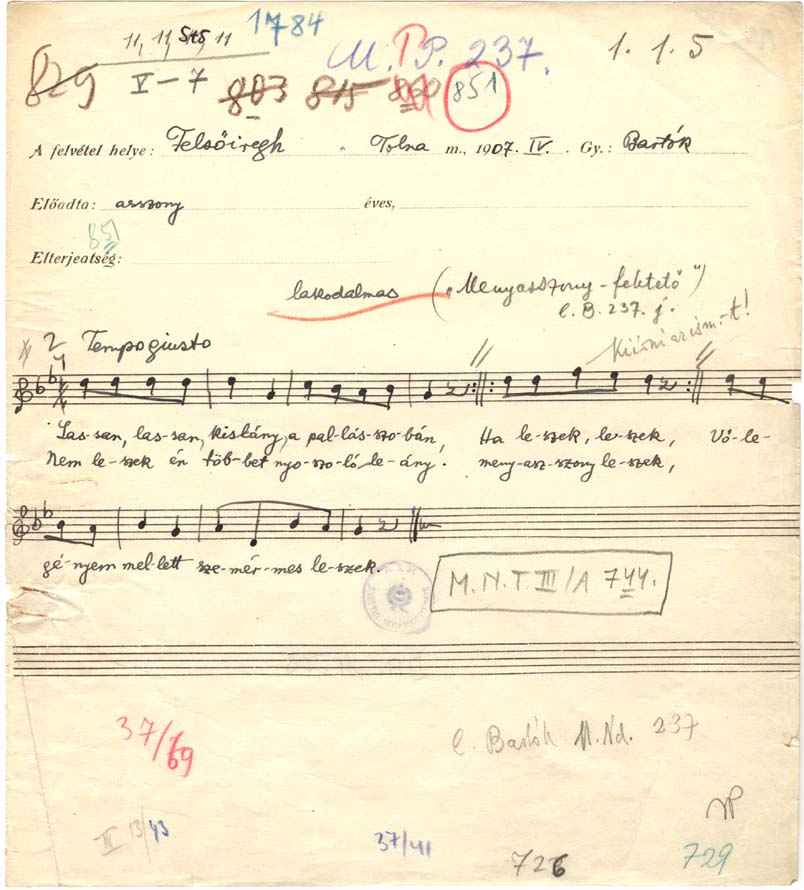 1784
11, 11, 5+5, 11
M.P. 237.
1. 1. 5
829
V–7
803 815 851
A felvétel helye: Felsőiregh Tolna m., 1907. IV. Gy.: Bartók
Előadta: asszony éves,
851
Elterjedtség:
lakodalmas („Menyasszony-fektető")
l. B. 237. j.
2
4
Tempo giusto
Las-san, las-san, kislány, a pal-lás-szo-bán, Ha le-szek, le-szek, Vő-le-
Nem le-szek én töb-bet nyo-szo-ló-le-ány. meny-asz-szony le-szek,
gé-nyem mel-lett sze-mér-mes le-szek.
M.N.T. III/A 744.
37/69
l. Bartók M.Nd. 237
III 13/43
37/41
726
729